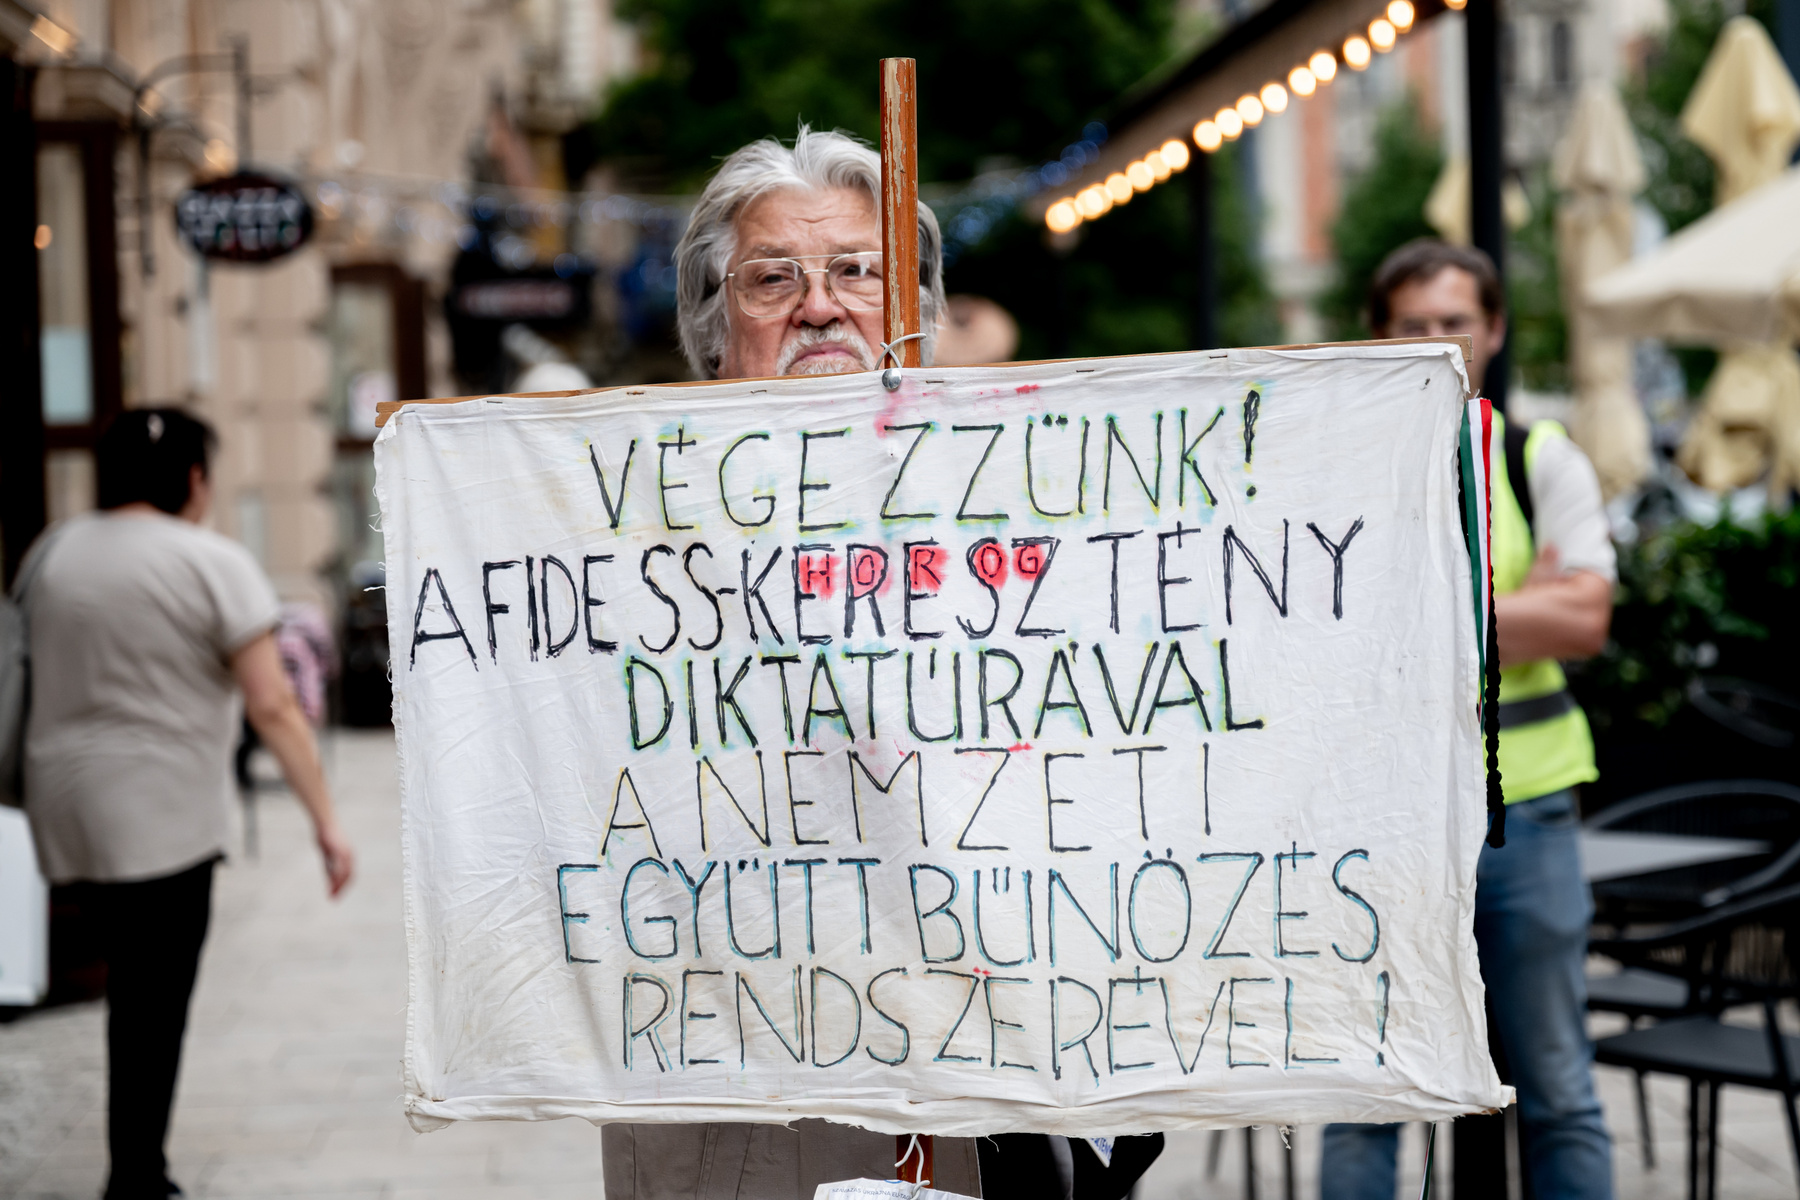 VÉGEZZÜNK!
HOROG
A FIDESS-KERESZTÉNY
DIKTATÚRÁVAL
A NEMZETI
EGYÜTTBŰNÖZÉS
RENDSZERÉVEL!